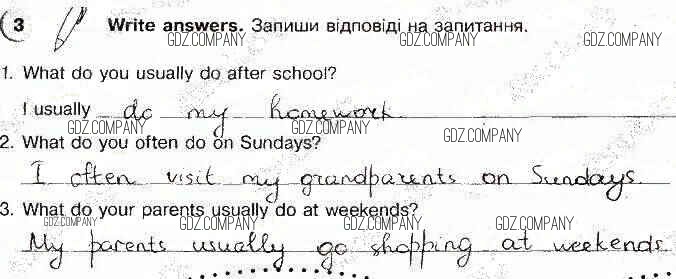 3 Write answers. Запиши відповіді на запитання.
GDZ.COMPANY GDZ.COMPANY GDZ.COMPANY
1. What do you usually do after school?
I usually do my homework.
GDZ.COMPANY GDZ.COMPANY GDZ.COMPANY
2. What do you often do on Sundays?
I often visit my grandparents on Sundays.
3. What do your parents usually do at weekends?
GDZ.COMPANY GDZ.COMPANY GDZ.COMPANY
My parents usually go shopping at weekends